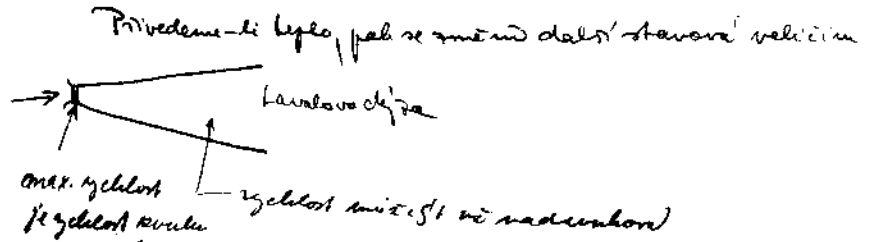 Přivedeme-li teplo, pak se změní další stavová veličina
Lavalova dýza
max. rychlost
je rychlost zvuku
rychlost může být nadzvuková